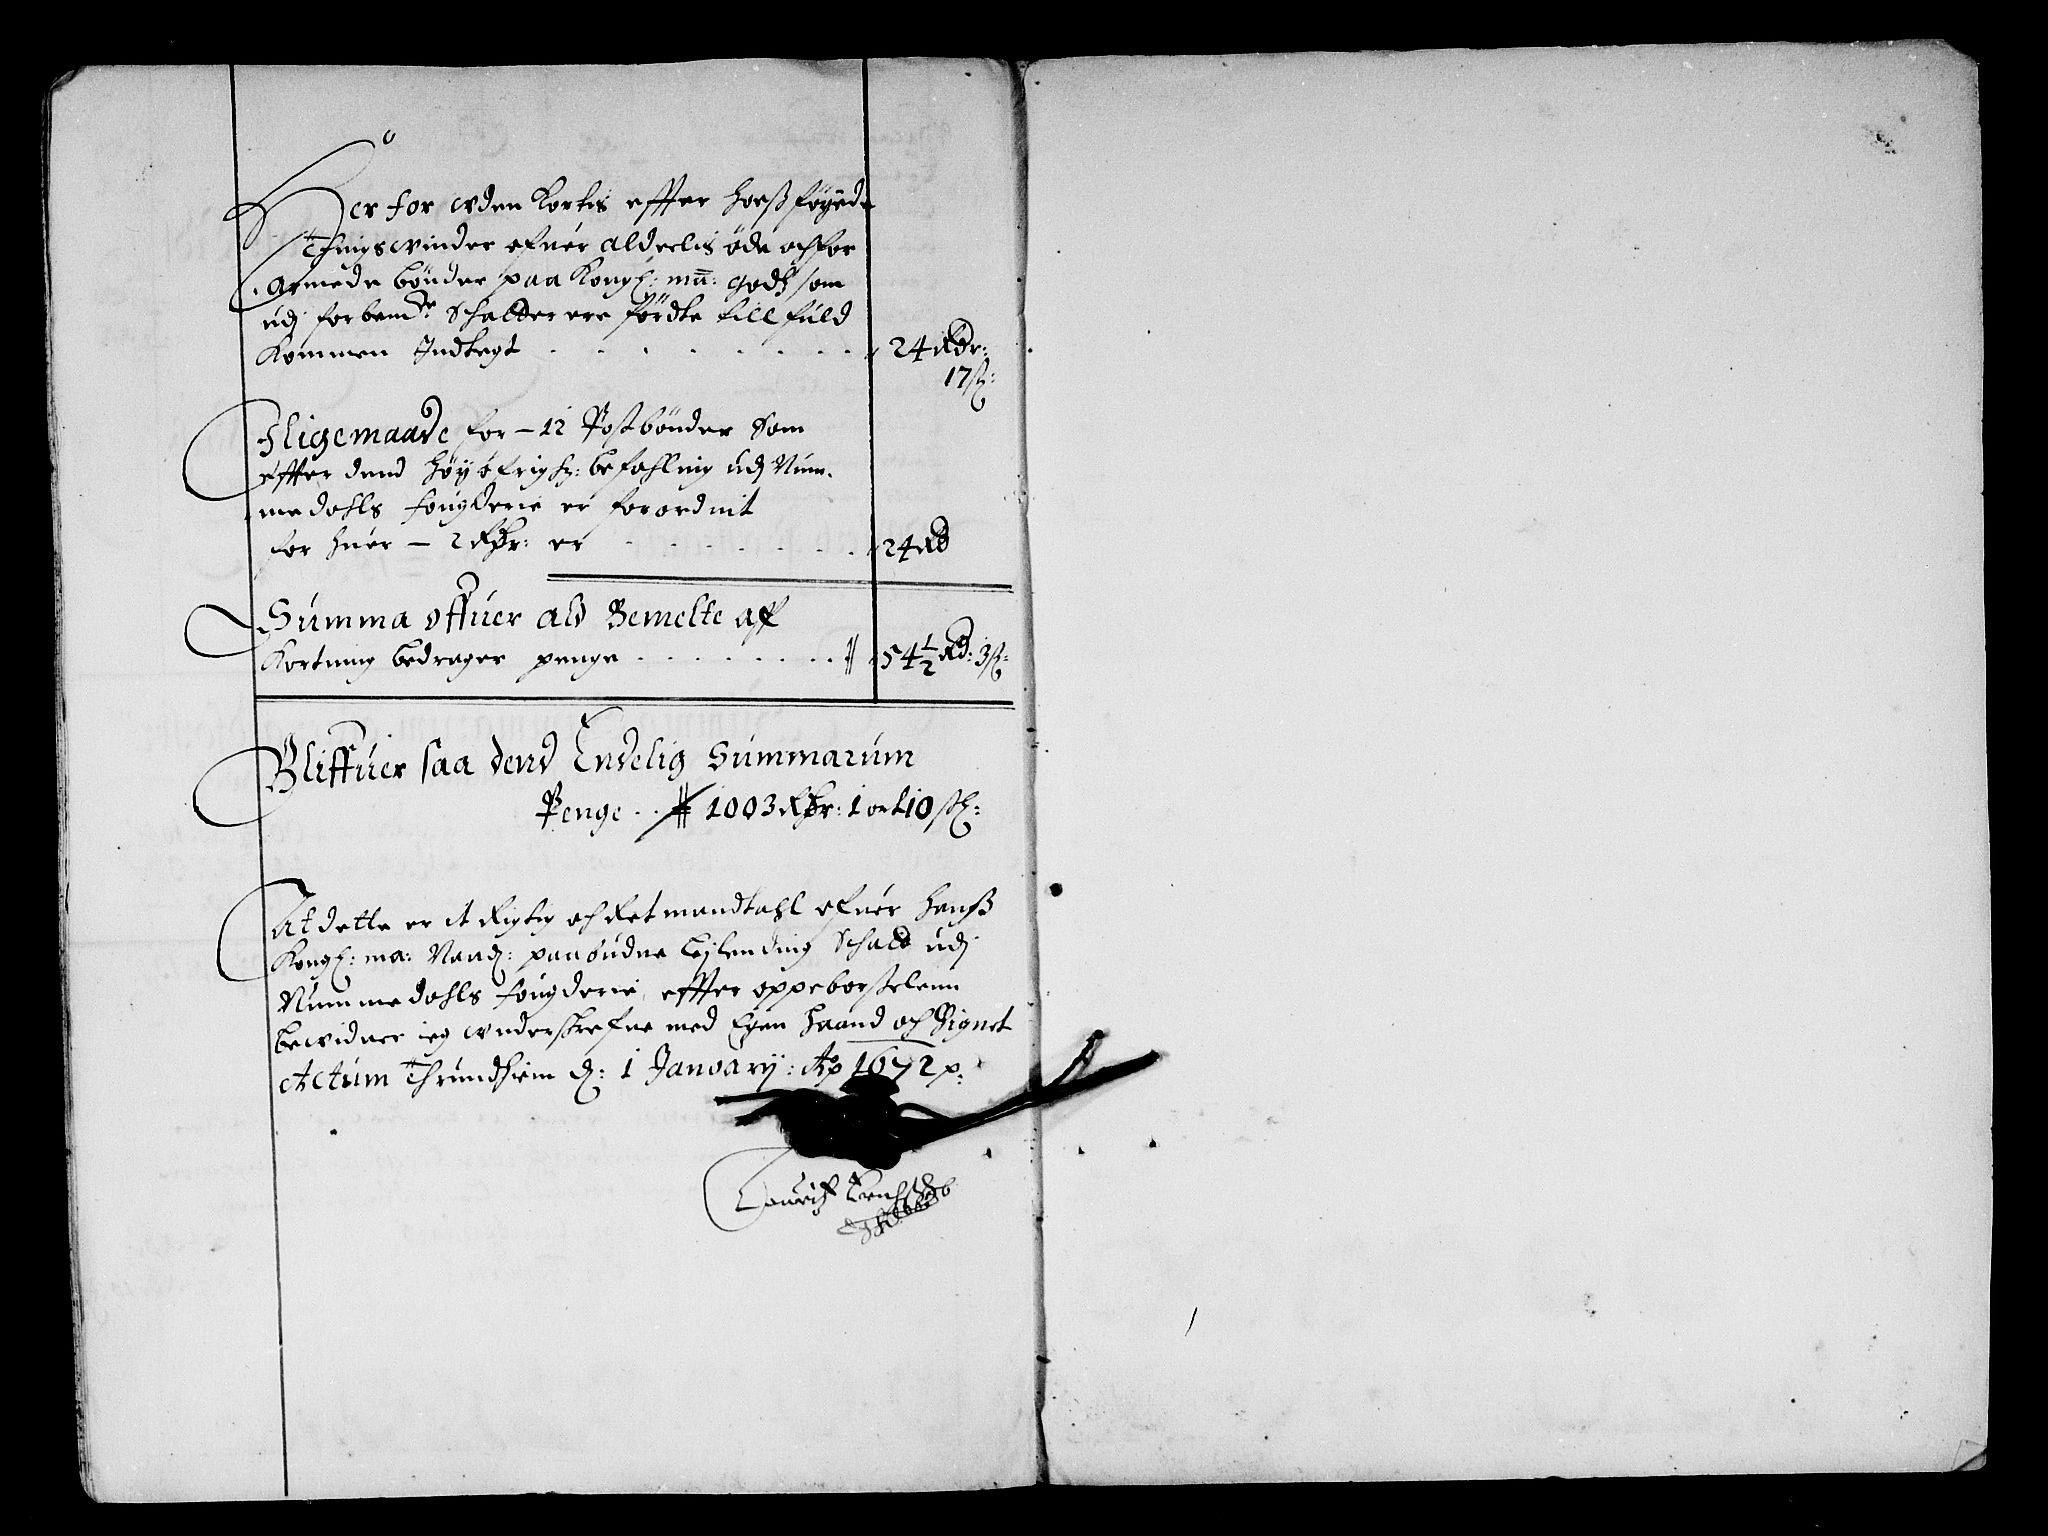 Her for vden Kortis effter hoesføyede
Thingsvinder ofuer alderlis øde och for
armede bønder paa Kongl: may: godz som
udj forbemte Schatter ere førdte till fuld
Kommen Indtegt . . . . . . . . 24 Rdr:
17 sz:
Iligemaade for - 12 Postbønder som
effter dend høy øfrigh: befahling udj Num-
medahls fougderie er forordnit
for huer - 2 Rdr: er . . . . . . . 24 Rd
Summa offuer ald Bemelte aff
Kortning bedrager penge . . . . . . . . 54 1/2 Rd: 3 sz:
Bliffuer saa dend Endelig Summarum
Penge . . 1003 Rdr: 1 ort 10 sz:
At dette er it Rigtig och Ret mandtahl ofuer hanß
Kongl: ma: Naad: paabudne Leylending Schatt udj
Nummedahls fougderie, effter oppeborßelenn
bevidner ieg vnderskrefne med Egen haand och Signet
Actum Thrundhiem d: 1 January: Ao 1672 p:
Lauritz